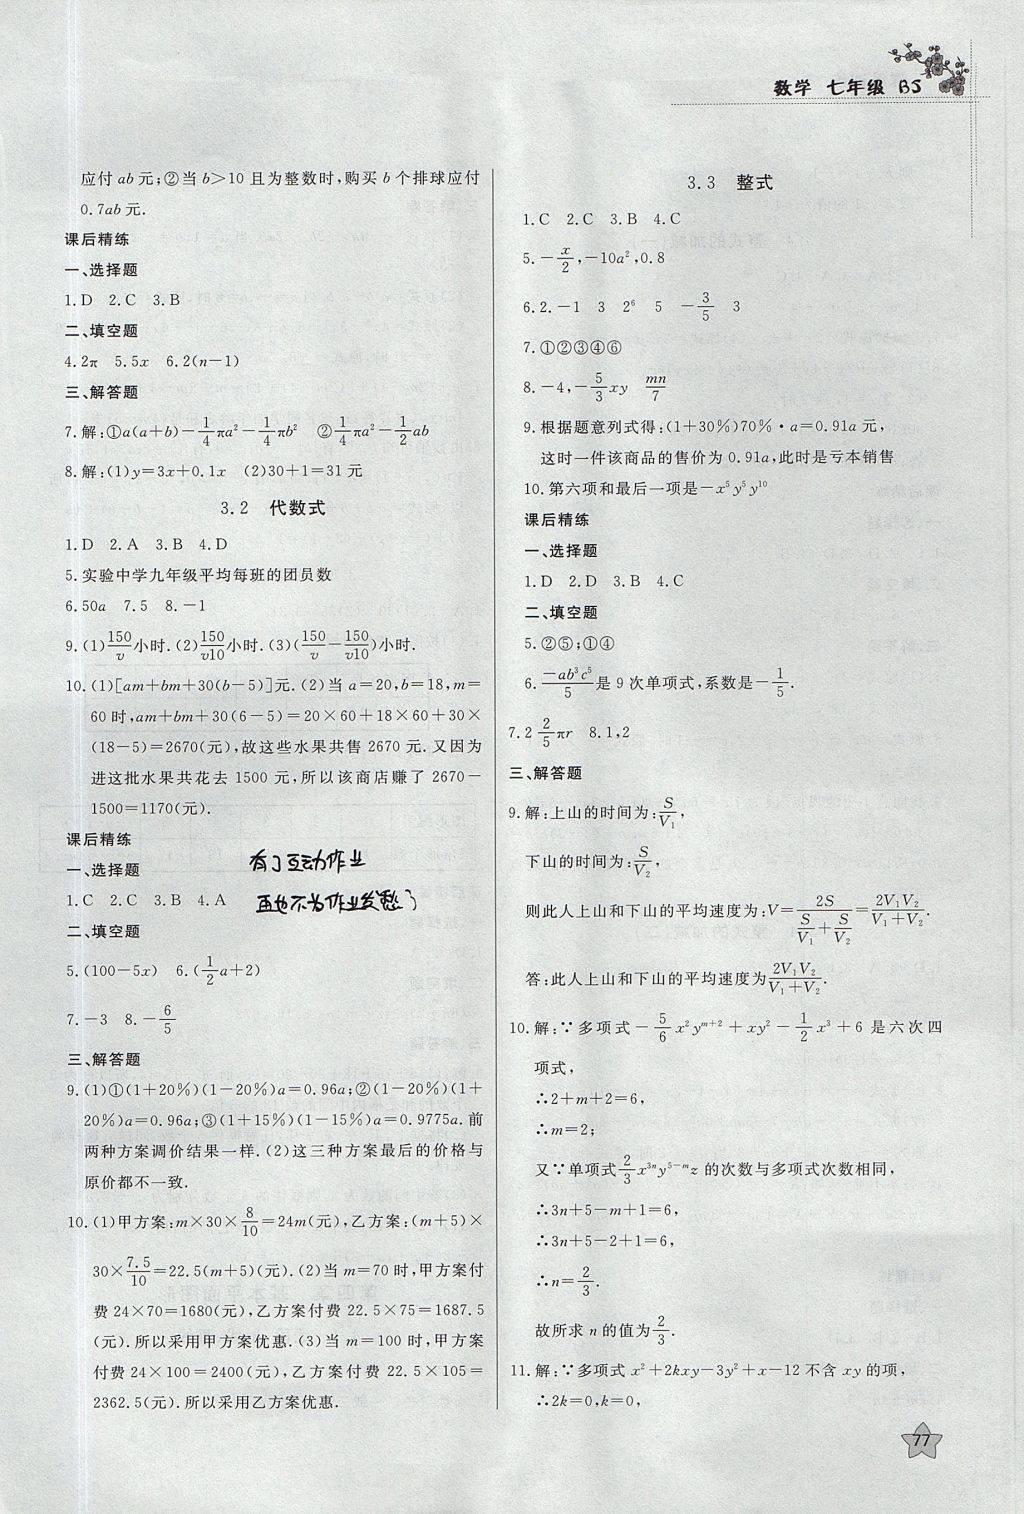 数学 七年级 BS
应付 ab 元;②当 b>10 且为整数时,购买 b 个排球应付
0.7ab 元.
课后精练
一、选择题
1.D 2.C 3.B
二、填空题
4.2π 5.5x 6.2(n-1)
三、解答题
7.解:①a(a+b)-\frac{1}{4}πa²-\frac{1}{4}πb² ②\frac{1}{4}πa²-\frac{1}{2}ab
8.解:(1)y=3x+0.1x (2)30+1=31 元
3.2 代数式
1.D 2.A 3.B 4.D
5.实验中学九年级平均每班的团员数
6.50a 7.5 8.-1
9.(1)\frac{150}{v}小时.(2)\frac{150}{v10}小时.(3)(\frac{150}{v}-\frac{150}{v10})小时.
10.(1)[am+bm+30(b-5)]元.(2)当 a=20,b=18,m=
60 时,am+bm+30(6-5)=20×60+18×60+30×
(18-5)=2670(元),故这些水果共售 2670 元.又因为
进这批水果共花去 1500 元,所以该商店赚了 2670-
1500=1170(元).
课后精练
一、选择题
1.C 2.C 3.B 4.A
二、填空题
有了互动作业
再也不为作业发愁了
5.(100-5x) 6.(\frac{1}{2}a+2)
7.-3 8.-\frac{6}{5}
三、解答题
9.(1)①(1+20%)(1-20%)a=0.96a;②(1-20%)(1+
20%)a=0.96a;③(1+15%)(1-15%)a=0.9775a.前
两种方案调价结果一样.(2)这三种方案最后的价格与
原价都不一致.
10.(1)甲方案:m×30×\frac{8}{10}=24m(元),乙方案:(m+5)×
30×\frac{7.5}{10}=22.5(m+5)(元).(2)当 m=70 时,甲方案付
费 24×70=1680(元),乙方案付费 22.5×75=1687.5
(元).所以采用甲方案优惠.(3)当 m=100 时,甲方案
付费 24×100=2400(元),乙方案付费 22.5×105=
2362.5(元).所以采用乙方案优惠.
3.3 整式
1.C 2.C 3.B 4.C
5.-\frac{x}{2},-10a²,0.8
6.2.-1 3 2⁶ 5 -\frac{3}{5} 3
7.①②③④⑥
8.-4,-\frac{5}{3}xy \frac{mn}{7}
9.根据题意列式得:(1+30%)70%·a=0.91a 元,
这时一件该商品的售价为 0.91a,此时是亏本销售
10.第六项和最后一项是-x⁵y⁵y¹⁰
课后精练
一、选择题
1.D 2.D 3.B 4.C
二、填空题
5.②⑤;①④
6.\frac{-ab³c⁵}{5}是 9 次单项式,系数是-\frac{1}{5}.
7.2 \frac{2}{5}πr 8.1,2
三、解答题
9.解:上山的时间为:\frac{S}{V₁},
下山的时间为:\frac{S}{V₂},
则此人上山和下山的平均速度为:V=\frac{2S}{\frac{S}{V₁}+\frac{S}{V₂}}=\frac{2V₁V₂}{V₁+V₂}.
答:此人上山和下山的平均速度为\frac{2V₁V₂}{V₁+V₂}.
10.解:∵多项式-\frac{5}{6}x²y^{m+2}+xy²-\frac{1}{2}x³+6 是六次四
项式,
∴2+m+2=6,
∴m=2;
又∵单项式\frac{2}{3}x^{3n}y^{5-m}z 的次数与多项式次数相同,
∴3n+5-m+1=6,
∴3n+5-2+1=6,
∴n=\frac{2}{3}.
故所求 n 的值为\frac{2}{3}.
11.解:∵多项式 x²+2kxy-3y²+x-12 不含 xy 的项,
∴2k=0,k=0,
77